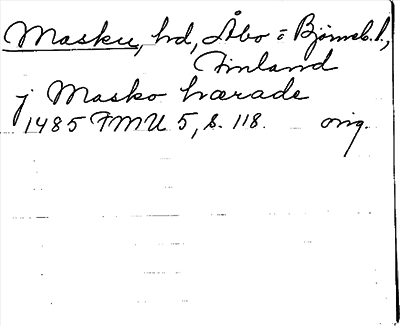 Masku, hd, Åbo = Björneb. l.,
Finland
j Masko hærade
1485 FMU 5, s. 118. orig.